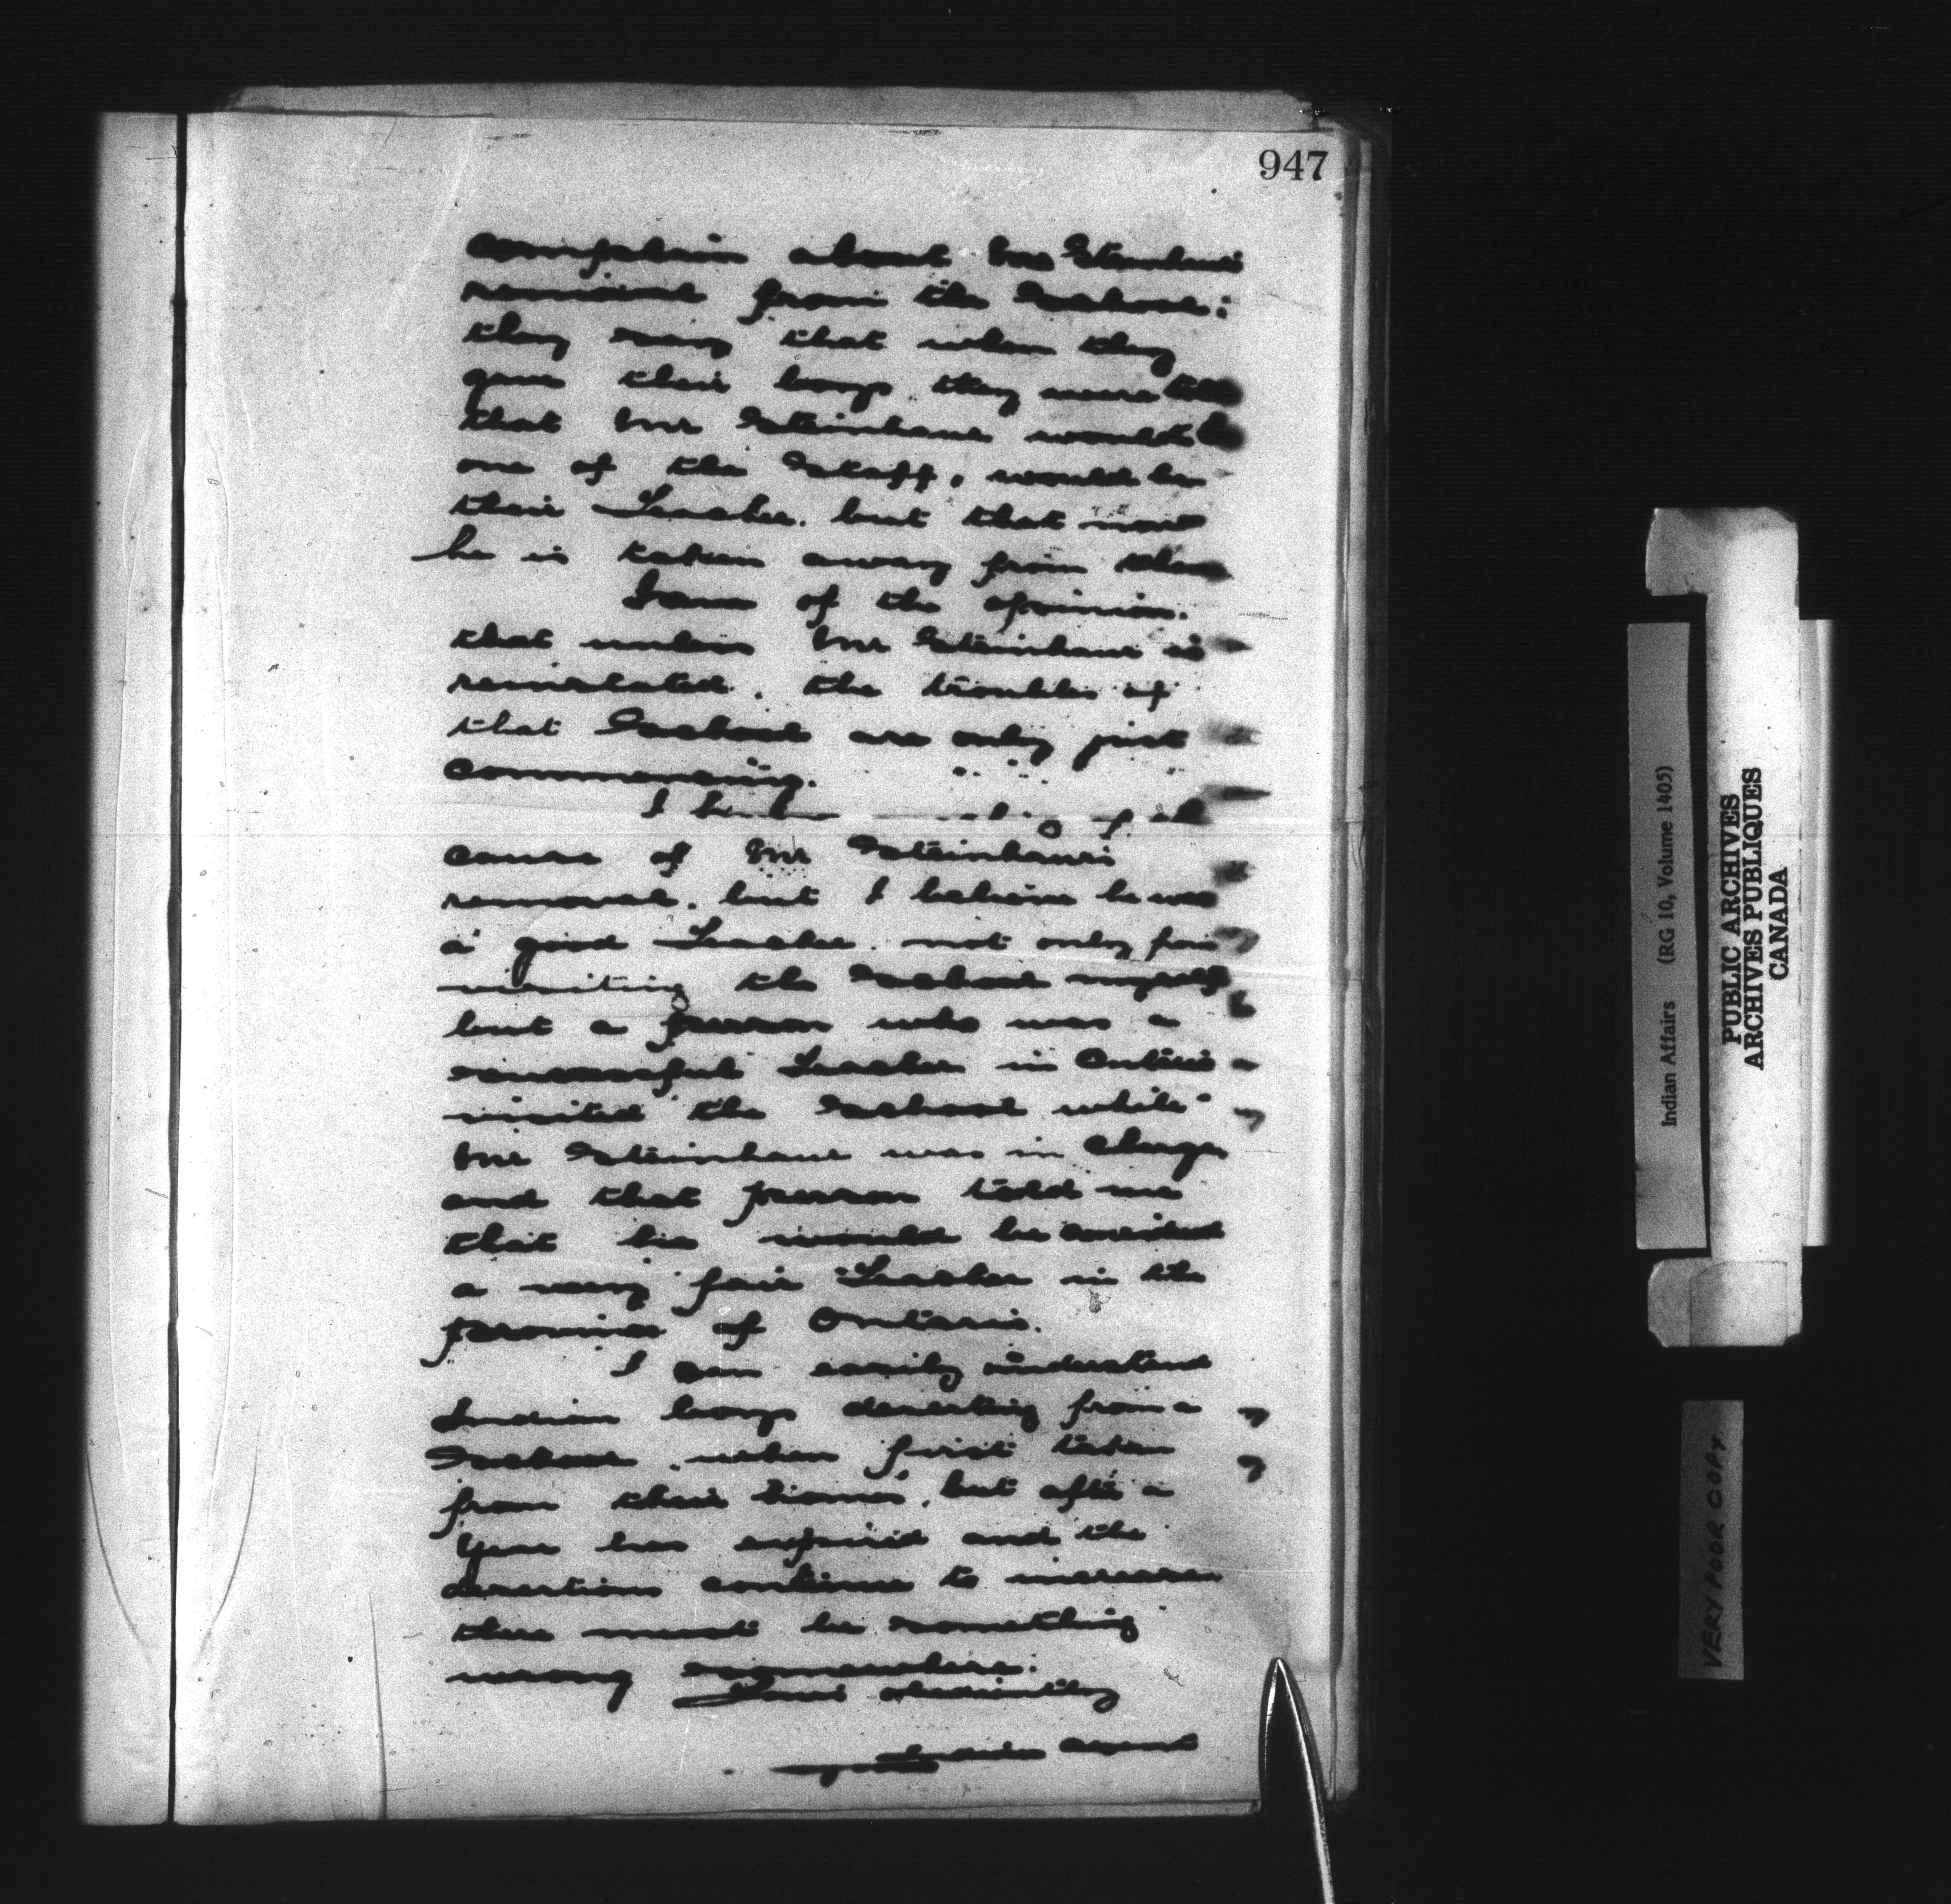 947
complain about Mr Steinhaur
removal from the School:
they say that when they
gave their boys they were told
that Mr Steinhaur would be
one of the Staff, would be
their Teacher. but that now
he is taken away from them
I am of the opinion.
that unless Mr Steinhaur is
reinstated. the troubles of
that School are only just
commencing.
I
cause of Mr Steinhaur's
removal. but I believe he was
a good Teacher. not only from
visiting the School myself
but a person who was a
successful Teacher in Ontario
visited the School while
Mr Steinhaur was in charge
and that person told me
that he would be considered
a very fair Teacher in the
province of Ontario.
I can easily understand
Indian boys deserting from a
School when first taken
from their homes, but after a
year has expired and the
desertions continue to increase
there must be something
wrong somewhere.
Yours obediently
Indian Agent
Indian Affairs (RG 10, Volume 1405)
PUBLIC ARCHIVES
ARCHIVES PUBLIQUES
CANADA
VERY POOR COPY